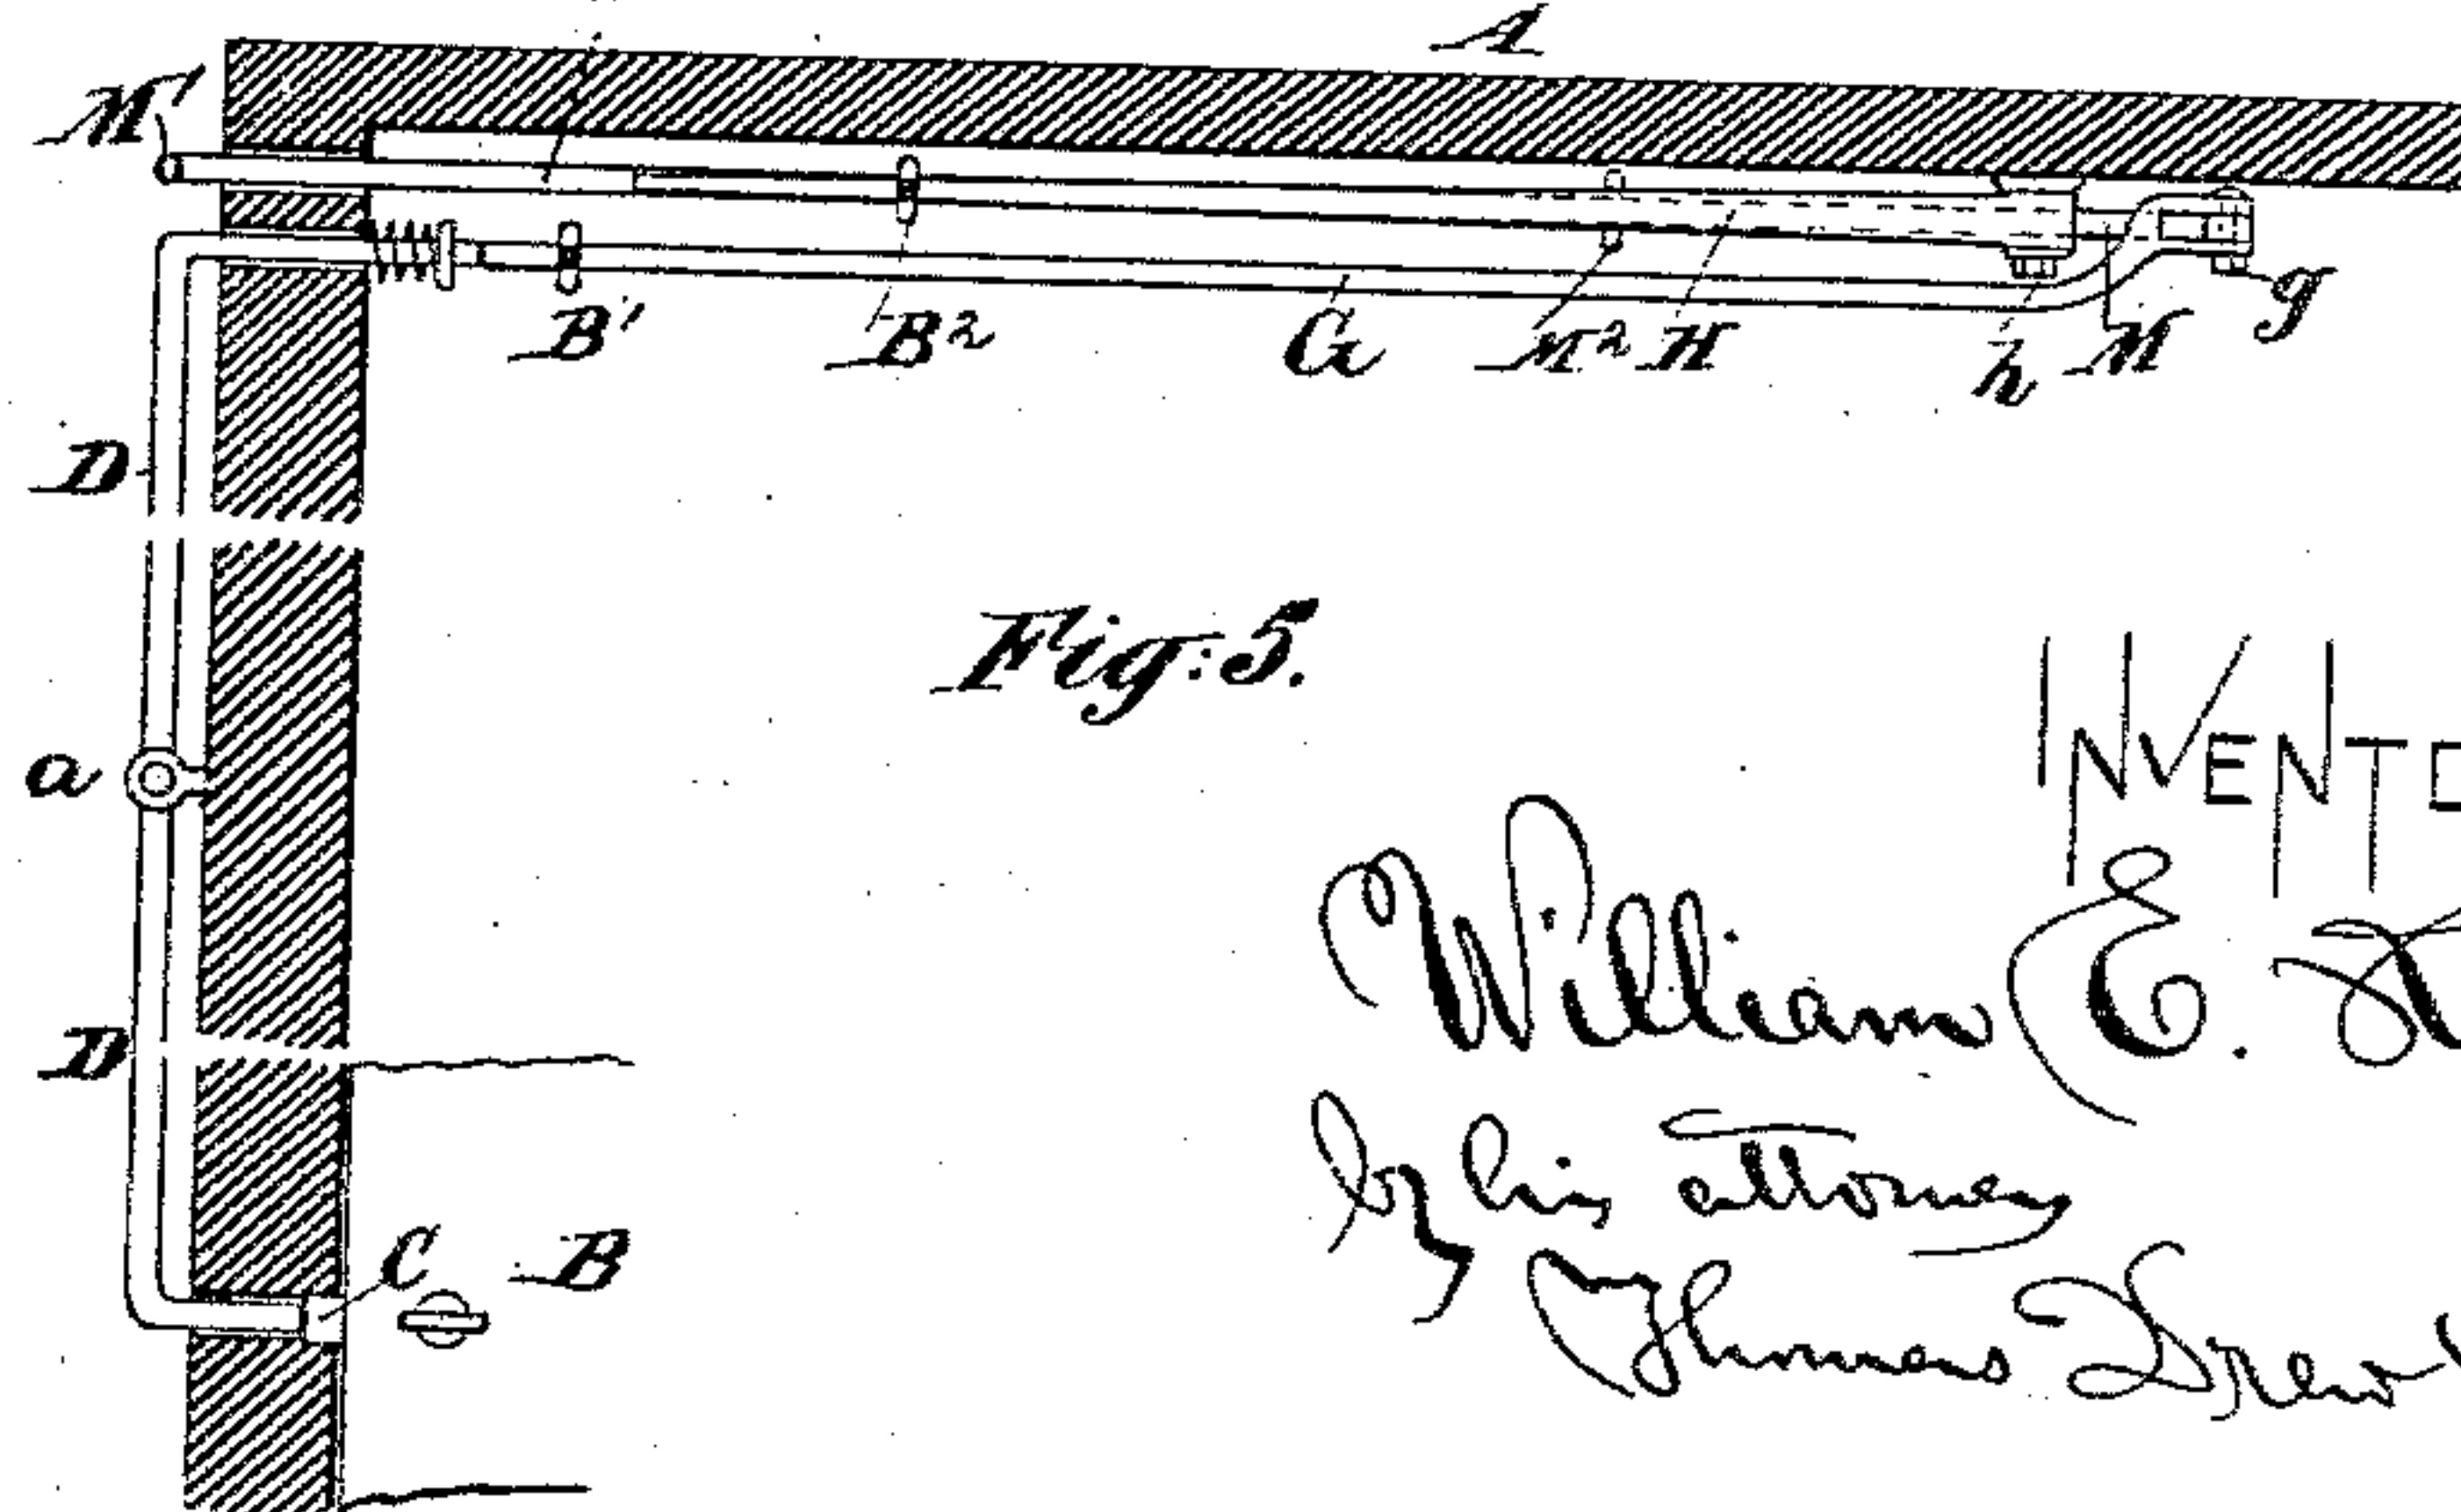 A
M'
B' B² G M² H h M g
D
Fig. 5.
a
INVENTO
William E.
D
by his attorney
C B
Thomas Drew